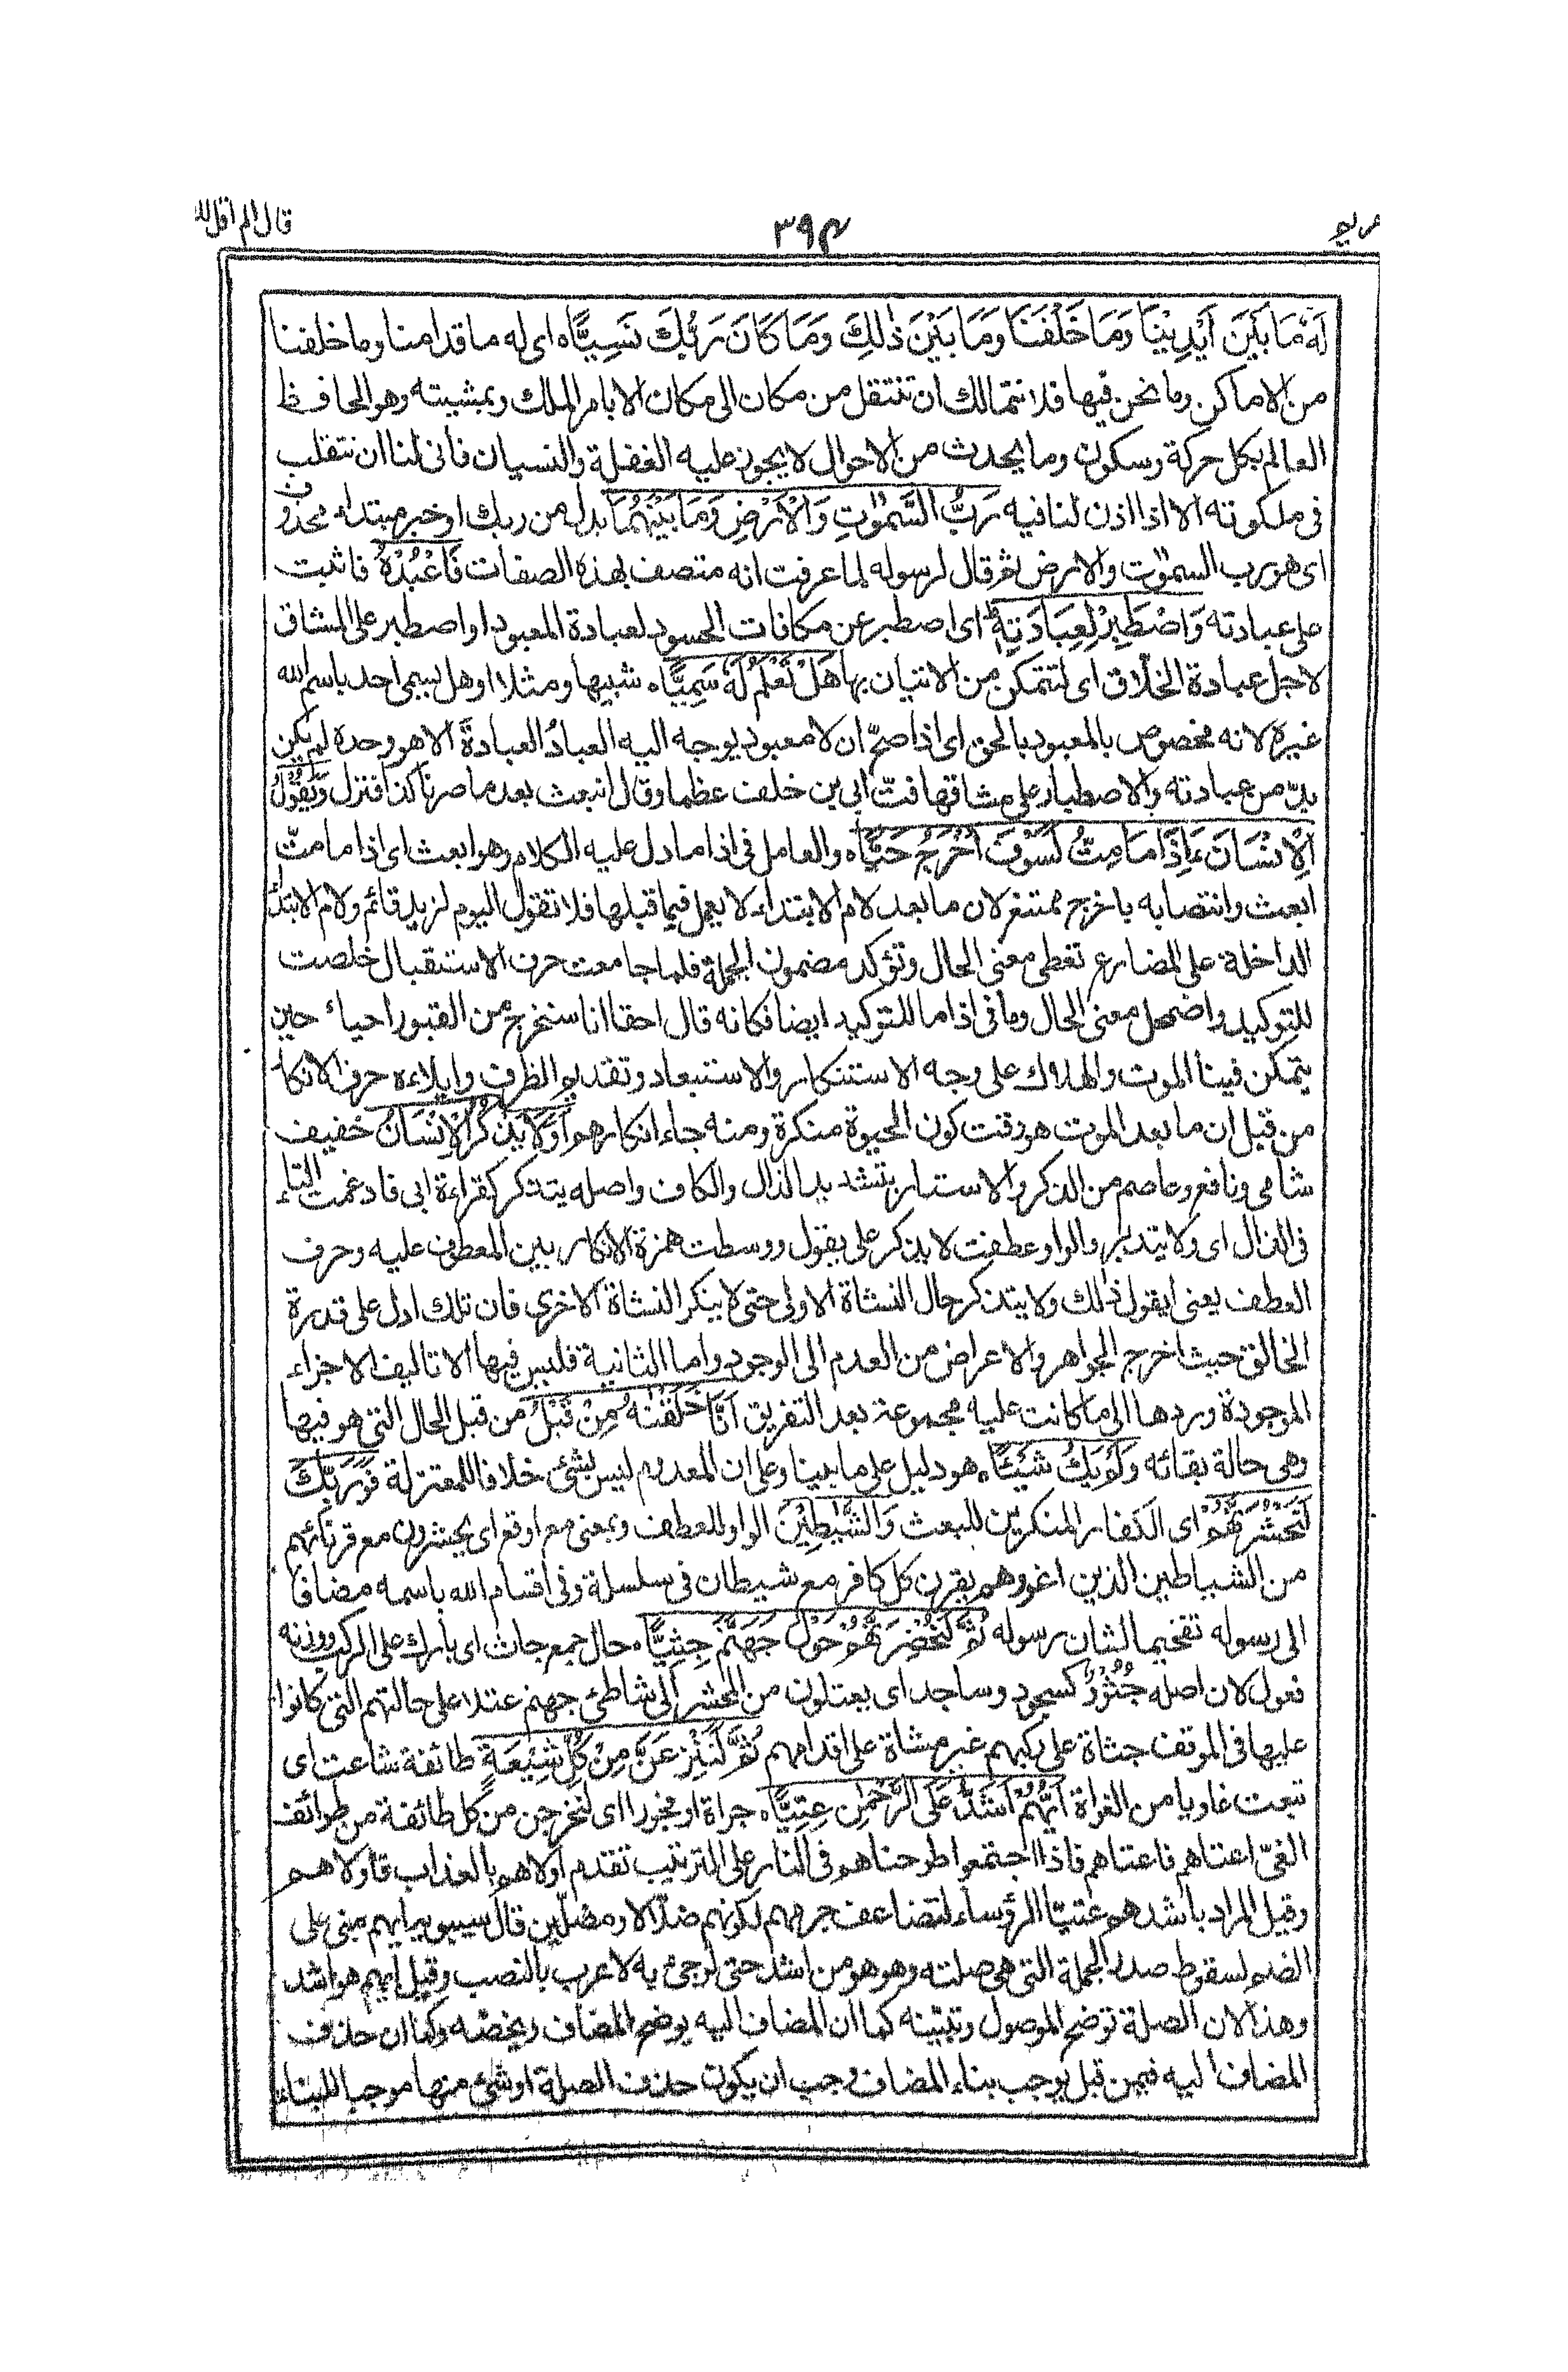 مريم
٣٩٤
قال الم اقل لك
لَهُ مَا بَيْنَ اَيْدِيْنَا وَمَا خَلْفَنَا وَمَا بَيْنَ ذٰلِكَ وَمَا كَانَ رَبُّكَ نَسِيًّا ه اى له ما قدامنا وما خلفنا
من الاماكن وما نحن فيها فلا نتمالك ان ننتقل من مكان الى مكان الا بامر الملك وبمشيته وهو الحافظ
العالم بكل حركة وسكون وما يحدث من الاحوال لا يجوز عليه الغفلة والنسيان فأنى لنا ان نتقلب
فى ملكوته الا اذا اذن لنا فيه رَبُّ السَّمٰوٰتِ وَالْاَرْضِ وَمَا بَيْنَهُمَا بدل من ربك او خبر مبتداء محذوف
اى هو رب السمٰوٰت والارض ثم قال لرسوله لما عرفت انه متصف بهذه الصفات فَاعْبُدْهُ فاثبت
على عبادته وَاصْطَبِرْ لِعِبَادَتِهٖ اى اصطبر عن مكافات الحسود لعبادة المعبود او اصطبر على المشاق
لاجل عبادة الخلّاق اى لتتمكن من الاتيان بها هَلْ تَعْلَمُ لَهٗ سَمِيًّا ه شبيها ومثلا او هل يسمى احد باسم الله
غيره لانه مخصوص بالمعبود بالحق اى اذا صحّ ان لا معبود يوجه اليه العبادُ العبادةَ الا هو وحده لم يكن
بدّ من عبادته والاصطبار على مشاقها فتّ ابى بن خلف عظما وقال انبعث بعد ما صرنا كذا فنزل وَيَقُوْلُ
الْاِنْسَانُ ءَاِذَا مَا مِتُّ لَسَوْفَ اُخْرَجُ حَيًّا ه والعامل فى اذا ما دل عليه الكلام وهو ابعث اى اذا ما متّ
ابعث وانتصابه باخرج ممتنع لان ما بعد لام الابتداء لا يعمل فيما قبلها فلا تقول اليوم لزيد قائم ولام الابتداء
الداخلة على المضارع تعطى معنى الحال وتؤكد مضمون الجملة فلما جامعت حرف الاستقبال خلصت
للتوكيد واضمحل معنى الحال وما فى اذا ما للتوكيد ايضا فكانه قال احقا انا سنخرج من القبور احياء حين
يتمكن فينا الموت والهلاك على وجه الاستنكار والاستبعاد وتقديم الظرف وايلاءه حرف الانكار
من قبل ان ما بعد الموت هو وقت كون الحيوة منكرة ومنه جاء انكارهم اَوَلَا يَذْكُرُ الْاِنْسَانُ خفيف
شامى ونافع وعاصم من الذكر والاستار بتشديد الذال والكاف واصله يتذكر كقراءة ابى فادغمت التاء
فى الذال اى ولا يتدبر والواو عطفت لا يذكر على يقول ووسطت همزة الانكار بين المعطوف عليه وحرف
العطف يعنى ايقول ذلك ولا يتذكر حال النشاة الاولى حتى لا ينكر النشاة الاخرى فان تلك ادل على قدرة
الخالق حيث اخرج الجواهر والاعراض من العدم الى الوجود واما الثانية فليس فيها الا تاليف الاجزاء
الموجودة وردها الى ما كانت عليه مجموعة بعد التفريق اَنَّا خَلَقْنٰهُ مِنْ قَبْلُ من قبل الحال التى هو فيها
وهى حالة بقائه وَلَمْ يَكُ شَيْئًا ه هو دليل على ما بينا وعلى ان المعدوم ليس بشئ خلافا للمعتزلة فَوَرَبِّكَ
لَنَحْشُرَنَّهُمْ اى الكفار المنكرين للبعث وَالشَّيٰطِيْنَ الواو للعطف وبمعنى مع اوقع اى يحشرون مع قرنائهم
من الشياطين الذين اغووهم يقرن كل كافر مع شيطان فى سلسلة وفى اقسام الله باسمه مضافا
الى رسوله تفخيما لشان رسوله ثُمَّ لَنُحْضِرَنَّهُمْ حَوْلَ جَهَنَّمَ جِثِيًّا ه حال جمع جاث اى بارك على الركب ووزنه
فعول لان اصله جُثُوْوٌ كسجود وساجد اى يعتلون من المحشر الى شاطئ جهنم عتلا على حالتهم التى كانوا
عليها فى الموقف جثاة على ركبهم غير مشاة على اقدامهم ثُمَّ لَنَنْزِعَنَّ مِنْ كُلِّ شِيْعَةٍ طائفة شاعت اى
تبعت غاويا من الغواة اَيُّهُمْ اَشَدُّ عَلَى الرَّحْمٰنِ عِتِيًّا ه جراة او فجورا اى لنخرجن من كل طائفة من طوائف
الغىّ اعتاهم فاعتاهم فاذا اجتمعوا طرحناهم فى النار على الترتيب تقدم اولاهم بالعذاب فاولاهم
وقيل المراد باشدهم عتيّا الرؤساء لتضاعف جرمهم لكونهم ضلّالا ومضلّين قال سيبويه ايهم مبنى على
الضم لسقوط صدر الجملة التى هى صلته وهو هو من اشد حتى لو جئ به لاعرب بالنصب وقيل ايهم هو اشد
وهذا لان الصلة توضح الموصول وتبيّنه كما ان المضاف اليه يوضح المضاف ويخصّه وكما ان حذف
المضاف اليه فى من قبل يوجب بناء المضاف وجب ان يكون حذف الصلة او شئ منها موجبا للبناء